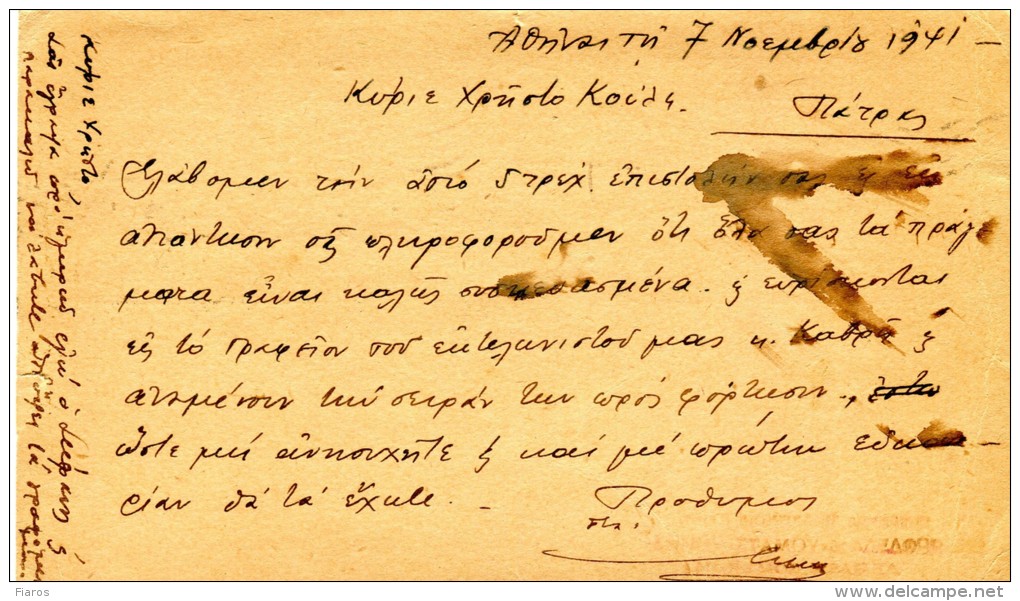 Αθήναι τη 7 Νοεμβρίου 1941 –
Κύριε Χρήστο
Πάτρας
Ελάβομεν την από 5 τρεχ επιστολήν σας & εις
απάντησιν σας πληροφορούμεν ότι όλα σας τα πράγ
ματα είναι καλώς συσκευασμένα & ευρίσκονται
εις το γραφείον του εκτελωνιστού μας κ. &
αναμένουν την σειράν των προς φόρτωσιν.,
ώστε μη ανησυχήτε & και με πρώτην ευκαι –
ρίαν θα τα έχετε.
Προθύμως
Κύριε Χρήστο
Σας έγραψα εγώ ο &
παρακαλώ να τα
Fiaros
delcampe.net